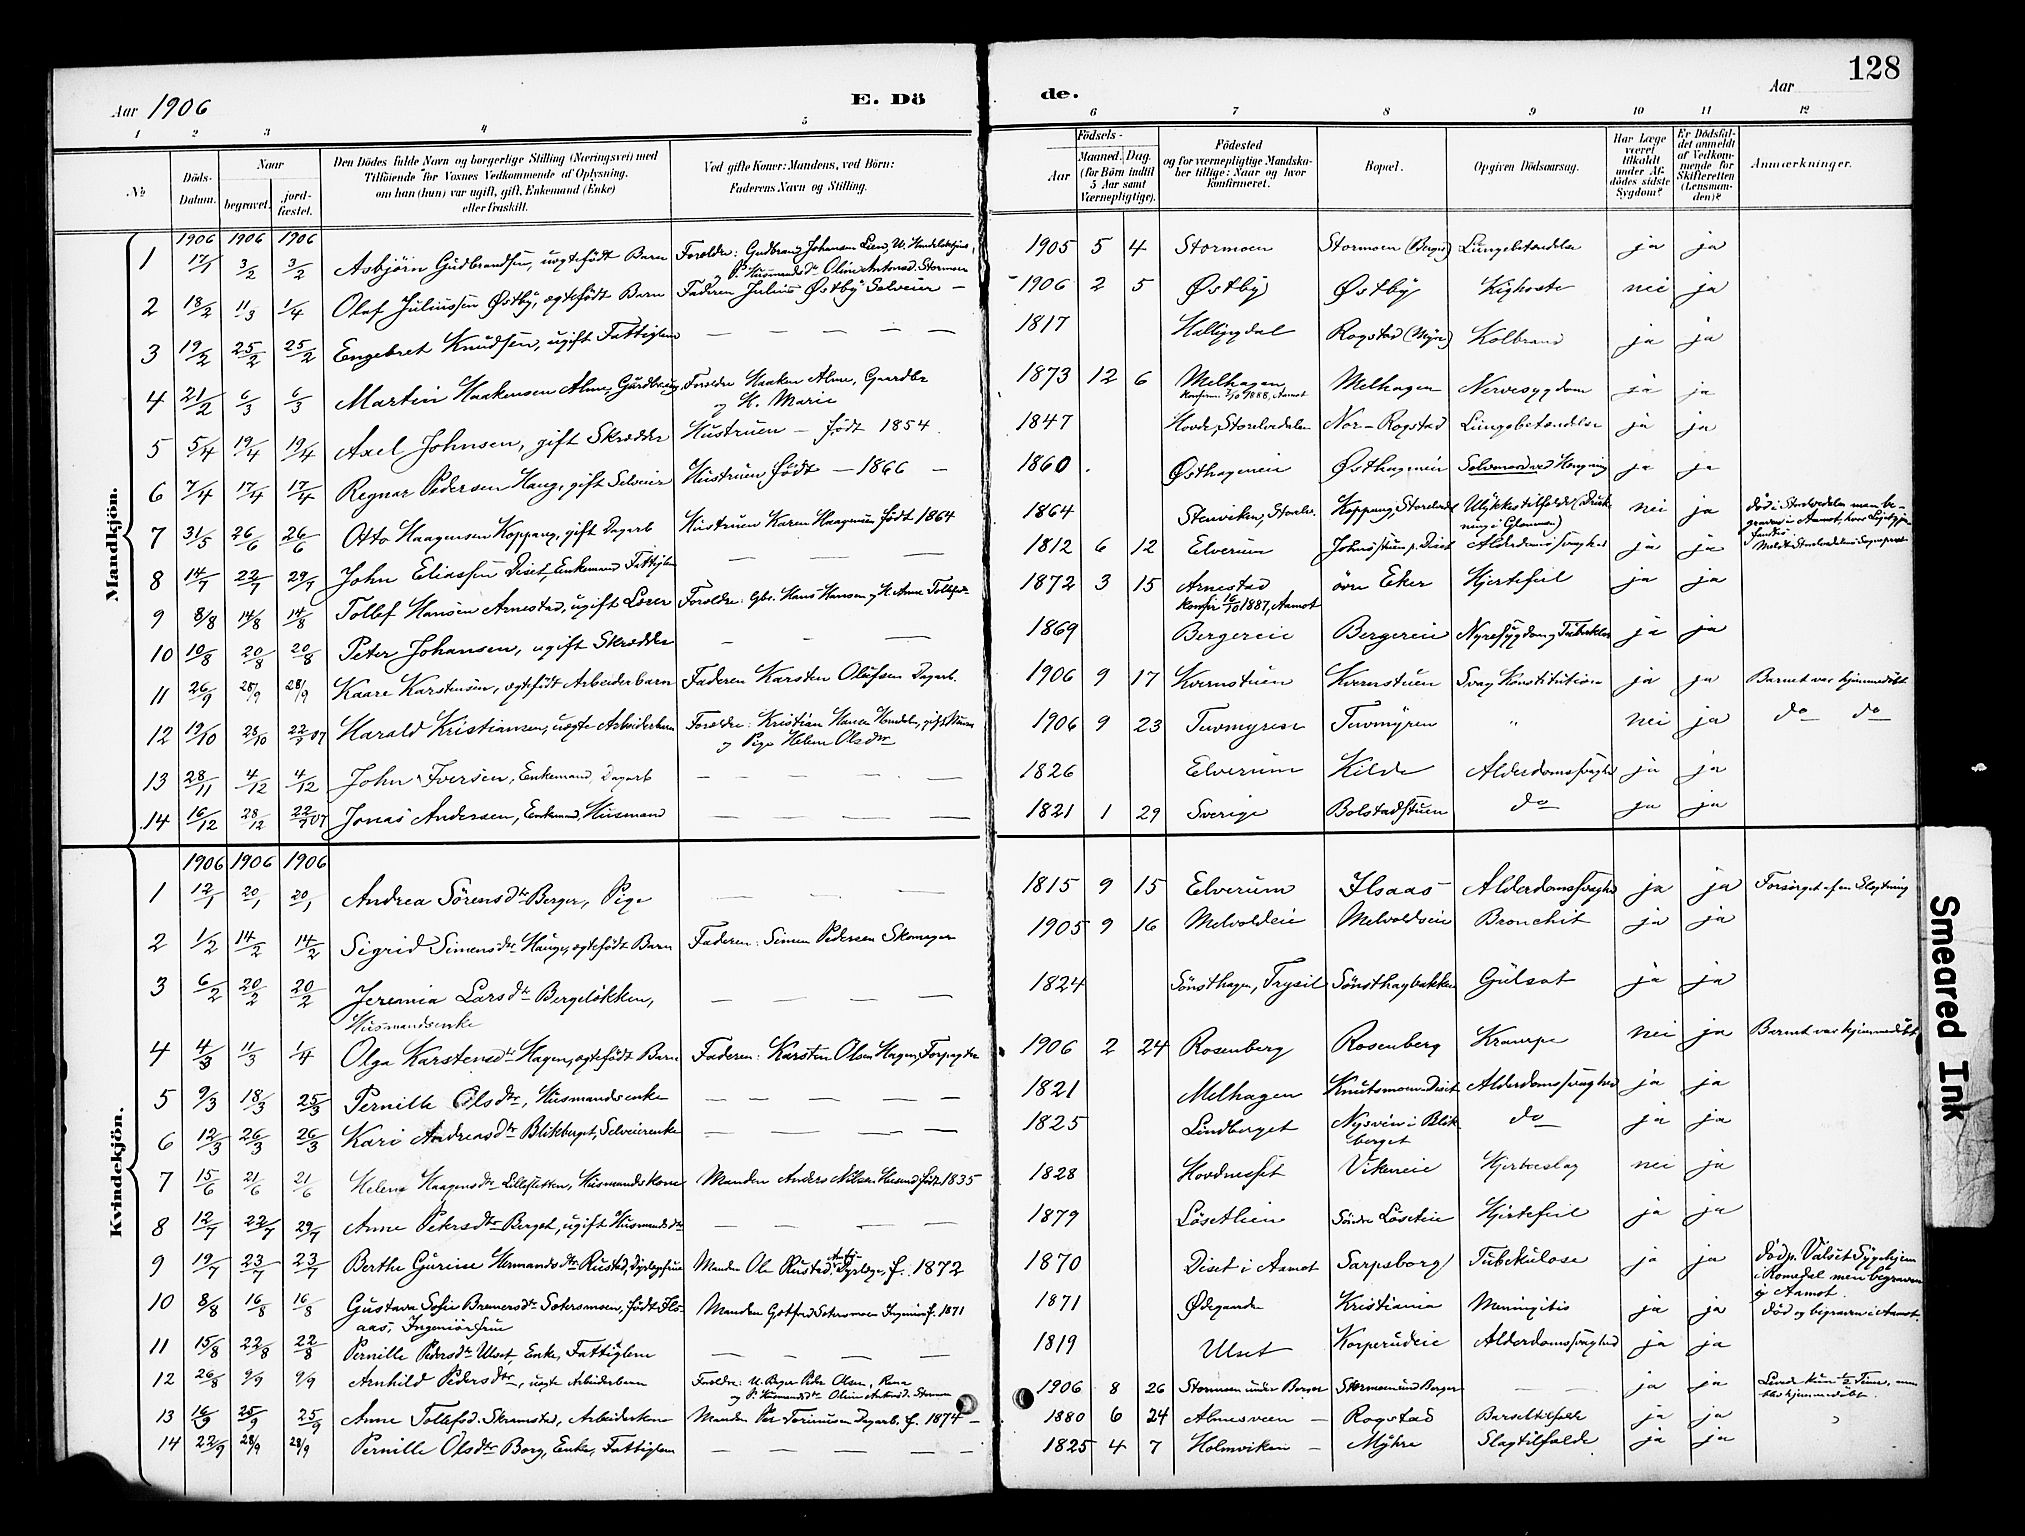 128
Aar 1906
E. Dö
de.
Aar
1 2 3 4 5 6 7 8 9 10 11 12
No
Döds-Datum.
Naar
begravet.
jord-fæstet.
Den Dödes fulde Navn og borgerlige Stilling (Næringsvei) med
Tilföiende for Voxnes Vedkommende af Oplysning,
om han (hun) var ugift, gift, Enkemand (Enke)
eller fraskilt.
Ved gifte Koner: Mandens, ved Börn:
Faderens Navn og Stilling.
Födsels-
Aar
Maaned. Dag.
(for Börn indtil
5 Aar samt
Værnepligtige).
Födested
og for værnepligtige Mandska-
ber tillige: Naar og hvor
konfirmeret.
Bopæl.
Opgiven Dödsaarsag.
Har Læge
været
tilkaldt
under Af-
dödes sidste
Sygdom?
Er Dödsfal-
det anmeldt
af Vedkom-
mende for
Skifteretten
(Lensman-
den)?
Anmærkninger.
Mandkjön.
1906 1906 1906
1 17/1 3/2 3/2 Asbjörn Gudbrandsen, uægtefödt Barn Foreldre: Gudbrand Johansen Lien, U. Handelsbetjent, 1905 5 4 Stormoen Stormoen (Berger) Lungebetændelse ja ja
og P. Husmandsdtr Oline Antonsd. Stormoen
2 18/2 11/3 1/4 Olaf Juliussen Østby, ægtefödt Barn Faderen Julius Østby Selveier — 1906 2 5 Østby Østby Kighoste nei ja
3 19/2 25/2 25/2 Engebret Knudsen, ugift Fattiglem — — — — — 1817 Hallingdal Rogstad (Myre) Kolbrand ja ja
4 21/2 6/3 6/3 Martin Haakensen Alme, Gårdbrug. Foreldre Haaken Alme, Gaardbr 1873 12 6 Melhagen Melhagen Nervesygdom ja ja
og H. Marie konfirm. 7/10 1888, Aamot
5 5/4 19/4 19/4 Axel Johnsen, gift Skrædder Hustruen — født 1854. 1847 Hovde, Storelvdalen Nor-Rogstad Lungebetændelse ja ja
6 7/4 17/4 17/4 Regnar Pedersen Haug, gift Selveier Hustruen født — 1866 — 1860 Østhagaeie Østhagaeie Selvmord ved Hengning ja ja
7 31/5 26/6 26/6 Otto Haagensen Koppang, gift Dagarb Hustruen Karen Haagensen født 1864 1864 Stenviken, Storelv. Koppang, Storelvd Ulykkestilfælde (Druk- nei ja död i Storelvedalen men be-
ning i Glommen) graven i Aamot, hvor Liget
fandtes.
8 14/7 22/7 29/7 John Eliassen Diset, Enkemand Fattiglem — — — 1812 6 12 Elverum Johnsstuen p. Diset Alderdomssvaghed ja ja
9 8/8 14/8 14/8 Tollef Hansen Arnestad, ugift Lærer Foreldre: Gbr. Hans Hansen og H. Anne Tollefsdtr 1872 3 15 Arnestad övre Eker Hjertefeil ja ja
konfir 16/10 1887, Aamot
10 10/8 20/8 20/8 Peter Johansen, ugift Skrædder — — — 1869 Bergereie Bergereie Nyresygdom og Tuberkler ja ja
11 26/9 28/9 28/9 Kaare Karstensen, ægtefödt Arbeiderbarn Faderen Karsten Olufsen Dagarb. 1906 9 17 Kvernstuen Kvernstuen Svag Konstitution ja ja Barnet var hjemmedöbt
12 19/10 28/10 22/7 07 Harald Kristiansen, uægte Arbeiderbarn Foreldre: Kristian Hansen Hendel, gift Mand 1906 9 23 Tuvmyren Tuvmyren " nei ja do do
og Pige Helene Olsdtr
13 28/11 4/12 4/12 John Iversen, Enkemand, Dagarb — — — — — 1826 Elverum Kilde Alderdomssvaghed ja ja
14 16/12 28/12 22/7 07 Jonas Andersen, Enkemand, Husmand — — — — 1821 1 29 Sverige Bolstadstuen do ja ja
Kvindekjön.
1906 1906 1906
1 12/1 20/1 20/1 Andrea Sörensdtr Berger, Pige — — — 1815 9 15 Elverum Ilsaas Alderdomssvaghed ja ja Forsörget af en Slægtning
2 1/2 14/2 14/2 Sigrid Simensdtr Hauge, ægtefödt Barn Faderen: Simen Pedersen Skomager 1905 9 16 Melvoldeie Melvoldseie Bronchit ja ja
3 6/2 20/2 20/2 Jeremia Larsdtr Bergelökken, — — — — 1824 Sönsthagen, Trysil Sönsthagbakken Gulsot ja ja
Husmandsenke
4 4/3 11/3 1/4 Olga Karstensdtr Hagen, ægtefödt Barn Faderen: Karsten Olsen Hagen, Forpagter 1906 2 24 Rosenberg Rosenberg Krampe nei ja Barnet var hjemmedöbt
5 9/3 18/3 25/3 Pernille Olsdtr, Husmandsenke — — — — — 1821 Melhagen Knutsmoen Diset Alderdomssvaghed ja ja
6 12/3 26/3 26/3 Kari Andreasdtr Blikberget, Selveierenke — — — — — 1825 Lindberget Nysvén i Blik- do ja ja
berget
7 15/6 21/6 21/6 Helene Haagensdtr Lillesætten, Husmandskone Manden Anders Nilsen Husmd, født 1835 1828 Hovdnesset Vikeneie Hjerteslag nei ja
8 12/7 22/7 29/7 Anne Petersdtr Berget, ugift Husmandsdtr — — — — 1879 Løsetlien Söndre Løseteie Hjertefeil ja ja
9 19/7 23/7 23/7 Berthe Gurine Hermandsdtr Rustad, Dyrlægefrue Manden Ole Rustad, Dyrlæge, f. 1872 1870 Diset i Aamot Sarpsborg Tubekulose ja ja död p. Valset Sygehjem
i Romedal men begraven
i Aamot.
10 8/8 16/8 16/8 Gustava Sofie Bremersdtr Sætersmoen, født Flo- Manden Gotfred Sætersmoen Ingeniör f. 1871 1871 Ødegaarden Kristiania Meningitis ja ja död og begraven i Aamot.
aas, Ingeniörfrue
11 15/8 22/8 22/8 Pernille Pedersdtr Ulset, Enke, Fattiglem — — — — 1819 Ulset Korperudeie Alderdomssvaghed ja ja
12 26/8 9/9 9/9 Arnhild Pedersdtr, uægte Arbeiderbarn Foreldre: U. Bager Peder Olsen, Rena 1906 8 26 Stormoen under Berger Stormoen und Berger — — ja ja Levede kun 1/2 Time, men
og P. Husmandsdtr Oline Antonsd. Stormoen blev hjemmedöbt
13 16/9 25/9 25/9 Anne Tollefsd. Skramstad, Arbeiderkone Manden Per Torinusen Dagarb. f. 1874 — 1880 6 24 Almesveen — Rogstad Barseltilfælde ja ja
14 22/9 28/9 28/9 Pernille Olsdtr Borg, Enke, Fattiglem — — — — — 1825 4 7 Holmviken — Myhre Slagtilfælde ja ja
Smeared Ink